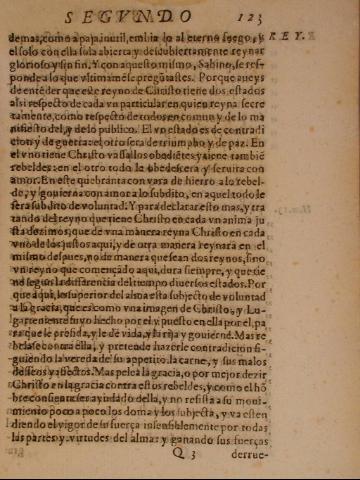 SEGVNDO 123
REY.
demas, como a paja inutil, embialo al eterno fuego, y
el solo con ella sola abierta y descubiertamente reynar
glorioso y sin fin. Y con aquesto mismo, Sabino, se res-
ponde a lo que vltimamēte pregūtastes. Porque aueys
de entēder que este reyno de Christo tiene dos estados
assi respecto de cada vn particular en quien reyna secre
tamente, como respecto de todos en comun y de lo ma
nifiesto del, y de lo publico. El vn estado es de contradi
cion y de guerra: el otro sera de triumpho y de paz. En
el vno tiene Christo vassallos obediētes y tiene tambiē
rebeldes: en el otro todo le obedescera y seruira con
amor. En este quebranta con vara de hierro a lo rebel-
de, y gouierna con amor a lo subdito, en aquel todo le
sera subdito de voluntad. Y para declarar esto mas, y tra
tando del reyno que tiene Christo en cada vn anima ju
sta dezimos, que de vna manera reyna Christo en cada
vno de los justos aqui, y de otra manera reynara en el
mismo despues, no de manera que sean dos reynos, sino
vn reyno que començado aqui, dura siempre, y que tie
ne segun la differencia del tiempo diuersos estados. Por
que aqui, lo superior del alma esta subjecto de voluntad
a la gracia, que es como vna imagen de Christo, y Lu-
garteniente suyo hecho por el y puesto en ella por el, pa
ra que le presida, y le dé vida, y la rija y gouierne. Mas re
belase contra ella, y pretende hazerle contradicion si-
guiendo la vereda de su appetito, la carne, y sus malos
desseos y affectos. Mas pelea la gracia, o por mejor dezir
Christo en la gracia contra estos rebeldes, y como el hō
bre consienta ser ayudado della, y no resista a su moui-
miento poco a poco los doma y los subjecta, y va esten
diendo el vigor de su fuerça insensiblemente por todas
las partes y virtudes del alma: y ganando sus fuerças
Q 3 derrue-